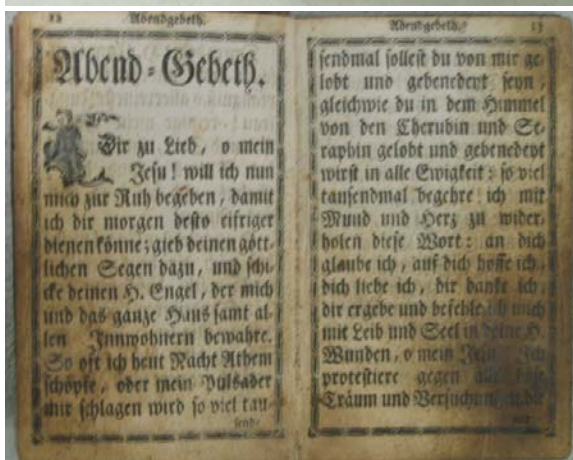 12 Abendgebeth.
Abend-Gebeth.
Dir zu Lieb, o mein
Jesu! will ich nun
mich zur Ruh begeben, damit
ich dir morgen desto eifriger
dienen könne; gieb deinen gött-
lichen Segen dazu, und schi-
cke deinen H. Engel, der mich
und das ganze Haus samt al-
len Innwohnern bewahre.
So oft ich heut Nacht Athem
schöpfe, oder mein Pulsader
mir schlagen wird so viel tau-
send-
Abendgebeth. 13
sendmal sollest du von mir ge-
lobt und gebenedeyt seyn,
gleichwie du in dem Himmel
von den Cherubin und Se-
raphin gelobt und gebenedeyt
wirst in alle Ewigkeit: so viel
tausendmal begehre ich mit
Mund und Herz zu wider-
holen diese Wort: an dich
glaube ich, auf dich hoffe ich,
dich liebe ich, dir danke ich,
dir ergebe und befehle ich mich
mit Leib und Seel in deine H.
Wunden, o mein Jesu! Ich
protestiere gegen alle böse
Träum und Versuchungen, die